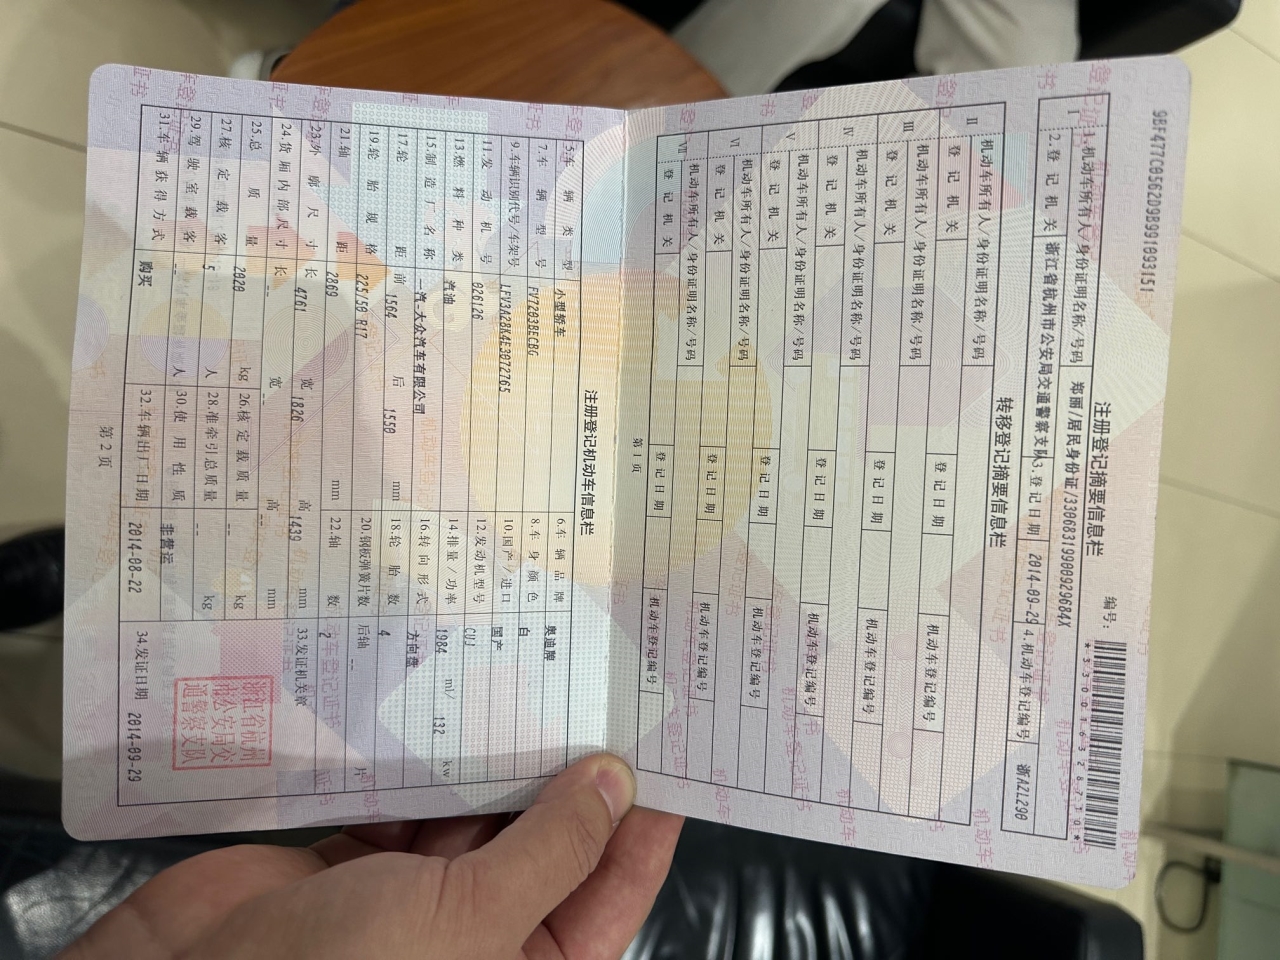 9BF477C0562D9B991093151
注册登记摘要信息栏
编号：
*330016328710*
I 1.机动车所有人/身份证明名称/号码 郑丽/居民身份证/33068319900929684X
2.登记机关 浙江省杭州市公安局交通警察支队 3.登记日期 2014-09-29 4.机动车登记编号 浙A2L290
转移登记摘要信息栏
II 机动车所有人/身份证明名称/号码
登记机关 登记日期 机动车登记编号
III 机动车所有人/身份证明名称/号码
登记机关 登记日期 机动车登记编号
IV 机动车所有人/身份证明名称/号码
登记机关 登记日期 机动车登记编号
V 机动车所有人/身份证明名称/号码
登记机关 登记日期 机动车登记编号
VI 机动车所有人/身份证明名称/号码
登记机关 登记日期 机动车登记编号
VII 机动车所有人/身份证明名称/号码
登记机关 登记日期 机动车登记编号
第1页
注册登记机动车信息栏
5.车辆类型 小型轿车 6.车辆品牌 奥迪牌
7.车辆型号 FV7203BECBG 8.车身颜色 白
9.车辆识别代号/车架号 LFV3A28K4E3072765 10.国产/进口 国产
11.发动机号 026126 12.发动机型号 CUJ
13.燃料种类 汽油 14.排量/功率 1984 ml/ 132 kw
15.制造厂名称 一汽-大众汽车有限公司 16.转向形式 方向盘
17.轮距 前 1564 后 1550 mm 18.轮胎数 4
19.轮胎规格 225/50 R17 20.钢板弹簧片数 后轴 -- 片
21.轴距 2869 mm 22.轴数 2
23.外廓尺寸 长 4761 宽 1826 高 1439 mm 33.发证机关章
24.货厢内部尺寸 长 -- 宽 -- 高 -- mm
25.总质量 2020 kg 26.核定载质量 -- kg
27.核定载客 5 人 28.准牵引总质量 -- kg
29.驾驶室载客 -- 人 30.使用性质 非营运
31.车辆获得方式 购买 32.车辆出厂日期 2014-08-22 34.发证日期 2014-09-29
浙江省杭州
市公安局交
通警察支队
第2页